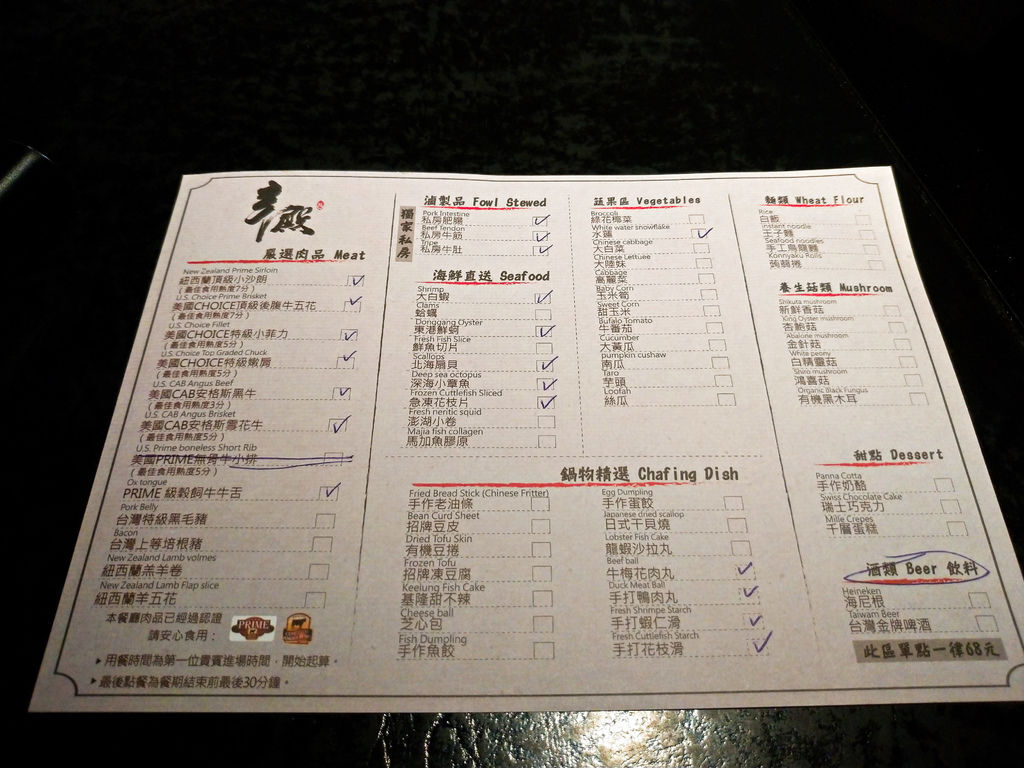 嚴選肉品 Meat
New Zealand Prime Sirloin
紐西蘭頂級小沙朗
(最佳食用熟度7分)
U.S. Choice Prime Brisket
美國CHOICE頂級後腹牛五花
(最佳食用熟度7分)
U.S. Choice Fillet
美國CHOICE特級小菲力
(最佳食用熟度5分)
U.S. Choice Top Graded Chuck
美國CHOICE特級嫩肩
(最佳食用熟度5分)
U.S. CAB Angus Beef
美國CAB安格斯黑牛
(最佳食用熟度3分)
U.S. CAB Angus Brisket
美國CAB安格斯雪花牛
(最佳食用熟度5分)
U.S. Prime boneless Short Rib
美國PRIME無骨牛小排
(最佳食用熟度5分)
Ox tongue
PRIME 級穀飼牛牛舌
Pork Belly
台灣特級黑毛豬
Bacon
台灣上等培根豬
New Zealand Lamb volmes
紐西蘭羔羊卷
New Zealand Lamb Flap slice
紐西蘭羊五花
本餐廳肉品已經過認證
請安心食用：
PRIME
▸用餐時間為第一位貴賓進場時間，開始起算。
▸最後點餐為餐期結束前最後30分鐘。
滷製品 Fowl Stewed
獨家私房
Pork Intestine
私房肥腸
Beef Tendon
私房牛筋
Tripe
私房牛肚
海鮮直送 Seafood
Shrimp
大白蝦
Clams
蛤蠣
Donggang Oyster
東港鮮蚵
Fresh Fish Slice
鮮魚切片
Scallops
北海扇貝
Deep sea octopus
深海小章魚
Frozen Cuttlefish Sliced
急凍花枝片
Fresh neritic squid
澎湖小卷
Majia fish collagen
馬加魚膠原
蔬果區 Vegetables
Broccoli
綠花椰菜
White water snowflake
水蓮
Chinese cabbage
大白菜
Chinese Lettuee
大陸妹
Cabbage
高麗菜
Baby Corn
玉米筍
Sweet Corn
甜玉米
Bufalo Tomato
牛番茄
Cucumber
大黃瓜
pumpkin cushaw
南瓜
Taro
芋頭
Loofah
絲瓜
麵類 Wheat Flour
Rice
白飯
Instant noodle
王子麵
Seafood noodles
手工烏龍麵
Konnyaku Rolls
蒟蒻捲
養生菇類 Mushroom
Shikuta mushroom
新鮮香菇
King Oyster mushroom
杏鮑菇
Abalone mushroom
金針菇
White peony
白精靈菇
Shiro mushroom
鴻喜菇
Organic Black Fungus
有機黑木耳
鍋物精選 Chafing Dish
Fried Bread Stick (Chinese Fritter)
手作老油條
Bean Curd Sheet
招牌豆皮
Dried Tofu Skin
有機豆捲
Frozen Tofu
招牌凍豆腐
Keelung Fish Cake
基隆甜不辣
Cheese ball
芝心包
Fish Dumpling
手作魚餃
Egg Dumpling
手作蛋餃
Japanese dried scallop
日式干貝燒
Lobster Fish Cake
龍蝦沙拉丸
Beef ball
牛梅花肉丸
Duck Meat Ball
手打鴨肉丸
Fresh Shrimpe Starch
手打蝦仁滑
Fresh Cuttlefish Starch
手打花枝滑
甜點 Dessert
Panna Cotta
手作奶酪
Swiss Chocolate Cake
瑞士巧克力
Mille Crepes
千層蛋糕
酒類 Beer 飲料
Heineken
海尼根
Taiwan Beer
台灣金牌啤酒
此區單點一律68元